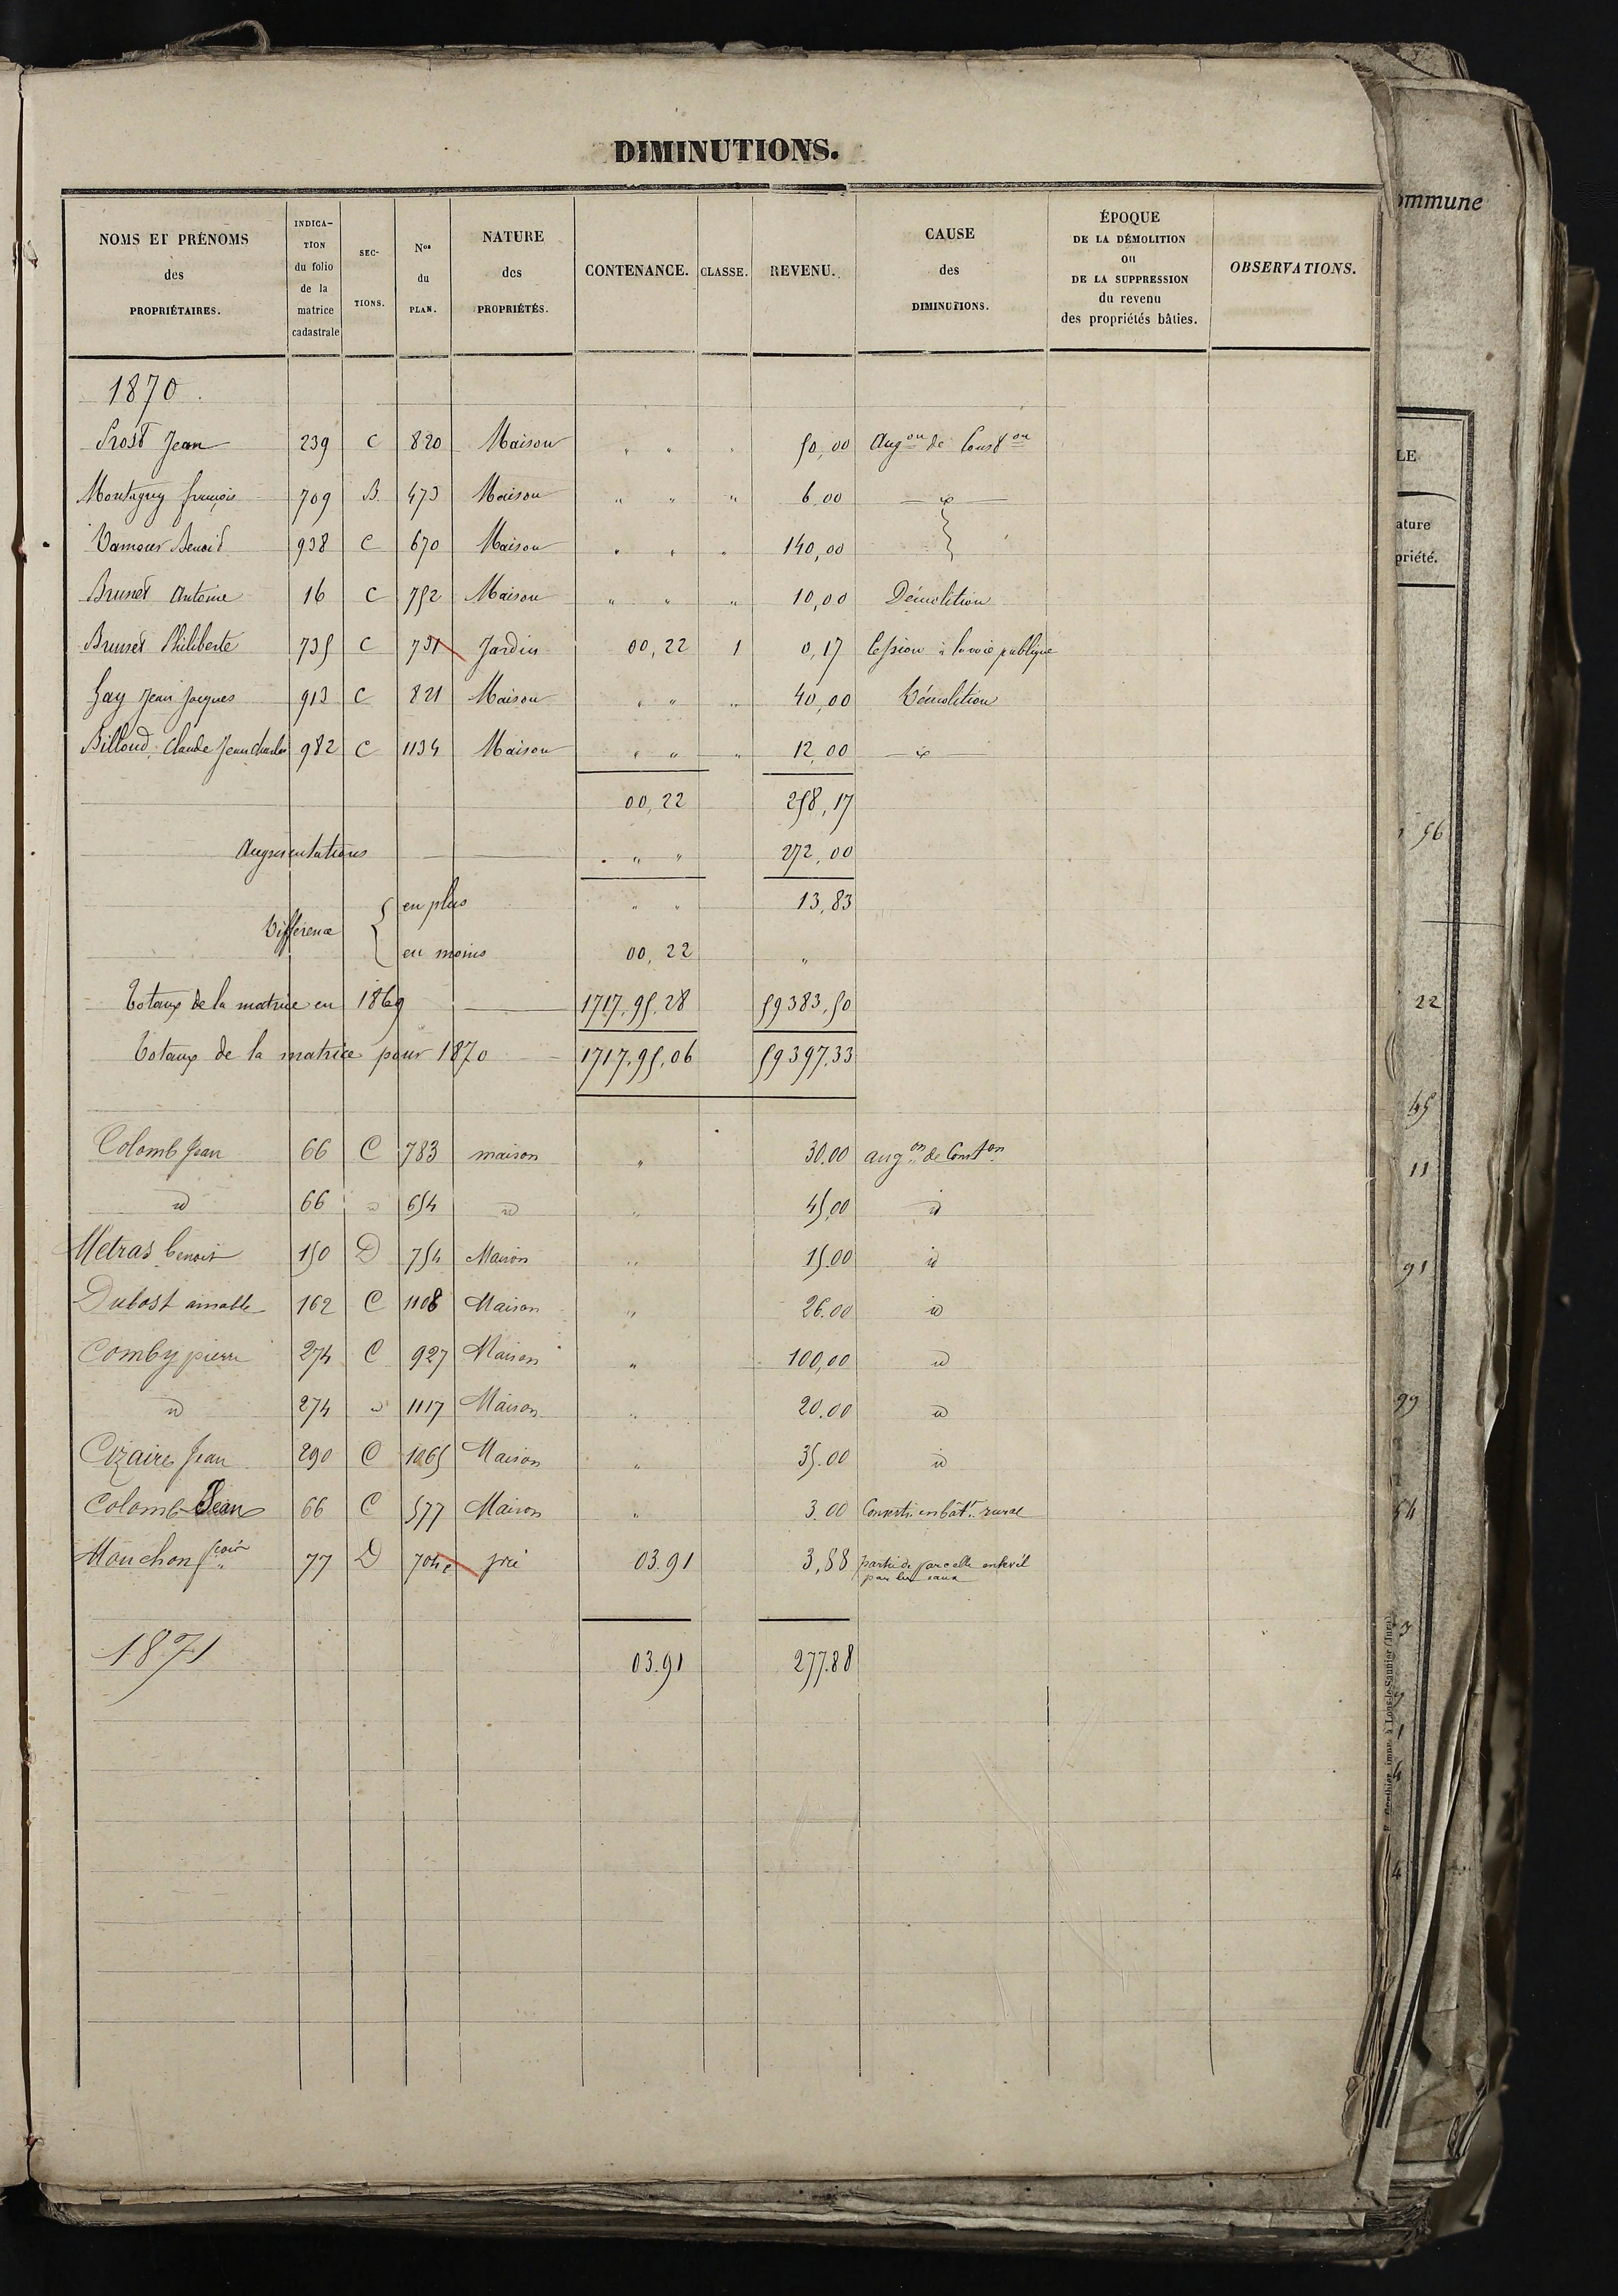 DIMINUTIONS.
NOMS ET PRÉNOMS des PROPRIÉTAIRES. | INDICA-TION du folio de la matrice cadastrale | SEC-TIONS. | Nos du PLAN. | NATURE des PROPRIÉTÉS. | CONTENANCE. | CLASSE. | REVENU. | CAUSE des DIMINUTIONS. | ÉPOQUE DE LA DÉMOLITION ou DE LA SUPPRESSION du revenu des propriétés bâties. | OBSERVATIONS.
1870.
Prost Jean 239 C 820 Maison " " " 50,00 Augon de Conston
Montagny françois 709 B. 473 Maison " " " 6,00 id
Benoit 938 C 670 Maison " " " 140,00
Brunet Antoine 16 C 752 Maison " " " 10,00 Démolition
Brunet Philiberte 735 C 731 Jardin 00,22 1 0,17 Cession à la voie publique
Gay Jean Jacques 913 C 821 Maison " " " 40,00 Démolition
Billoud, Claude Jean Charles 982 C 1134 Maison " " " 12,00 id
00,22 258,17
Augmentations " " 272,00
Différence { en plus " " 13,83
en moins 00,22 "
Totaux de la matrice en 1869 1717,95,28 59383,50
Totaux de la matrice pour 1870 1717,95,06 59397,33
Colomb Jean 66 C 783 maison " 30.00 augon de Conston
id 66 " 654 id " 45,00 id
Metras benoit 150 D 754 Maison " 15.00 id
Dubost aimable 162 C 1108 Maison " 26.00 id
Comby pierre 274 C 927 Maison " 100,00 id
id 274 " 1117 Maison " 20.00 id
Cizaire Jean 290 C 1065 Maison " 35.00 id
Colomb Jean 66 C 577 Maison " 3.00 Converti en bâtt. rural
Mouchon fcois 77 D 704e pré 03.91 3,88 partie de parcelle enlevée
par les eaux
1871 03.91 277.88
ommune
LE
ature
priété.
56
22
45
11
91
99
54
imp. à Lons-le-Saunier (Jura)